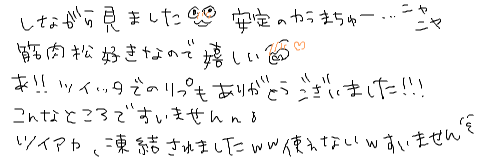 しながら見ました 安定のカラまちゅー… ニヤニヤ
筋肉松好きなので嬉しい
あ!! ツイッタでのリプもありがとうございました!!!
こんなところですいませんん
ツイアカ、凍結されましたww使えないwすいません